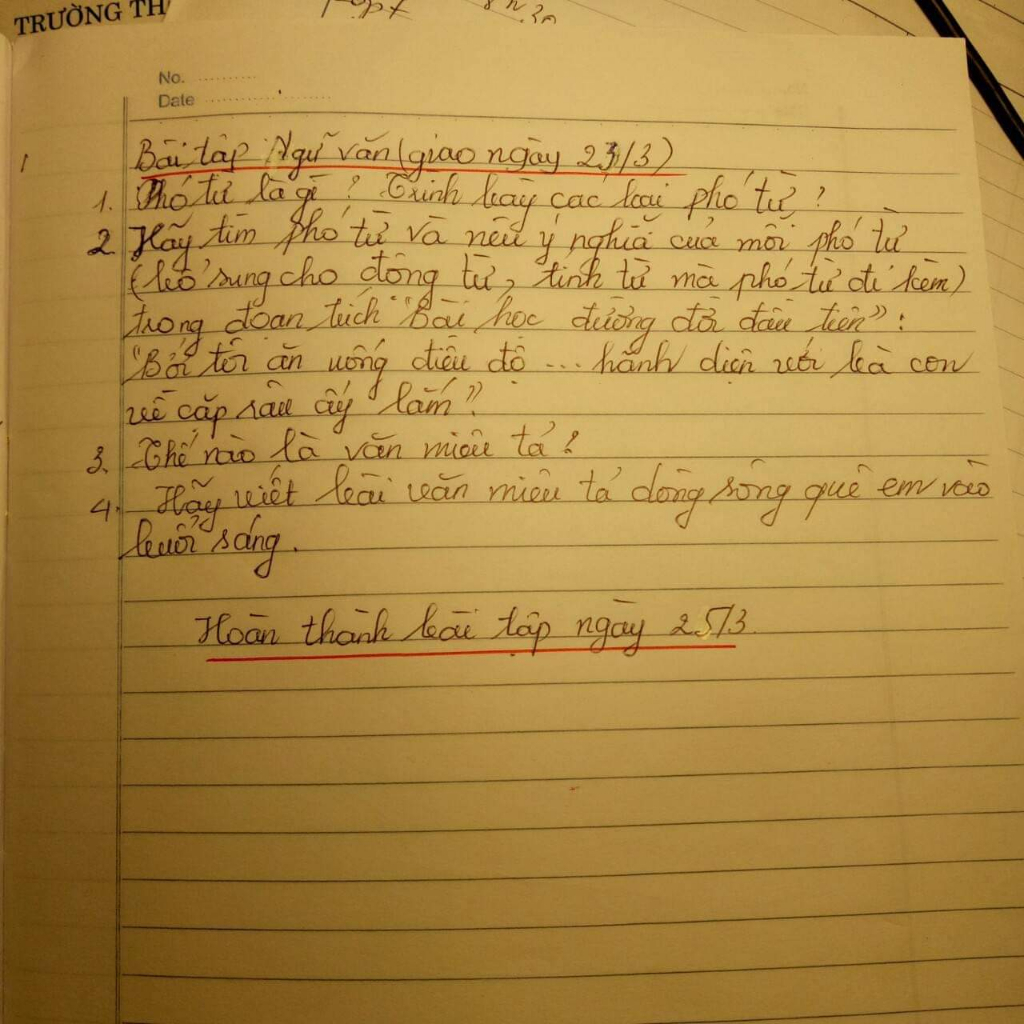 TRƯỜNG TH
No.
Date
Bài tập Ngữ văn (giao ngày 23/3)
1. Phó từ là gì? Trình bày các loại phó từ?
2. Hãy tìm phó từ và nêu ý nghĩa của mỗi phó từ
(bổ sung cho động từ, tính từ mà phó từ đi kèm)
trong đoạn trích "Bài học đường đời đầu tiên":
"Bởi tôi ăn uống điều độ ... hãnh diện với bà con
về cặp râu ấy lắm".
3. Thế nào là văn miêu tả?
4. Hãy viết bài văn miêu tả dòng sông quê em vào
buổi sáng.
Hoàn thành bài tập ngày 25/3.